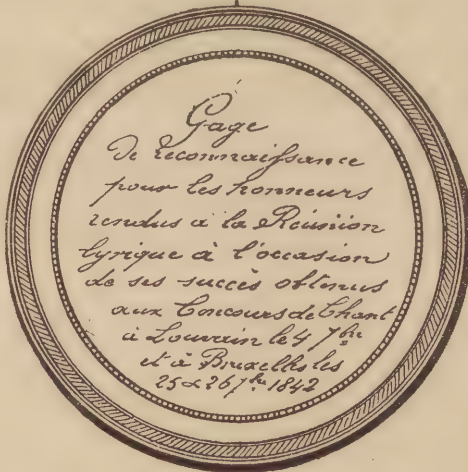 Gage
De reconnaissance
pour les honneurs
rendus à la Réunion
lyrique à l'occasion
de ses succès obtenus
aux Concours de Chant
à Louvain le 4 7bre
et à Bruxelles les
25 & 26 7bre 1842